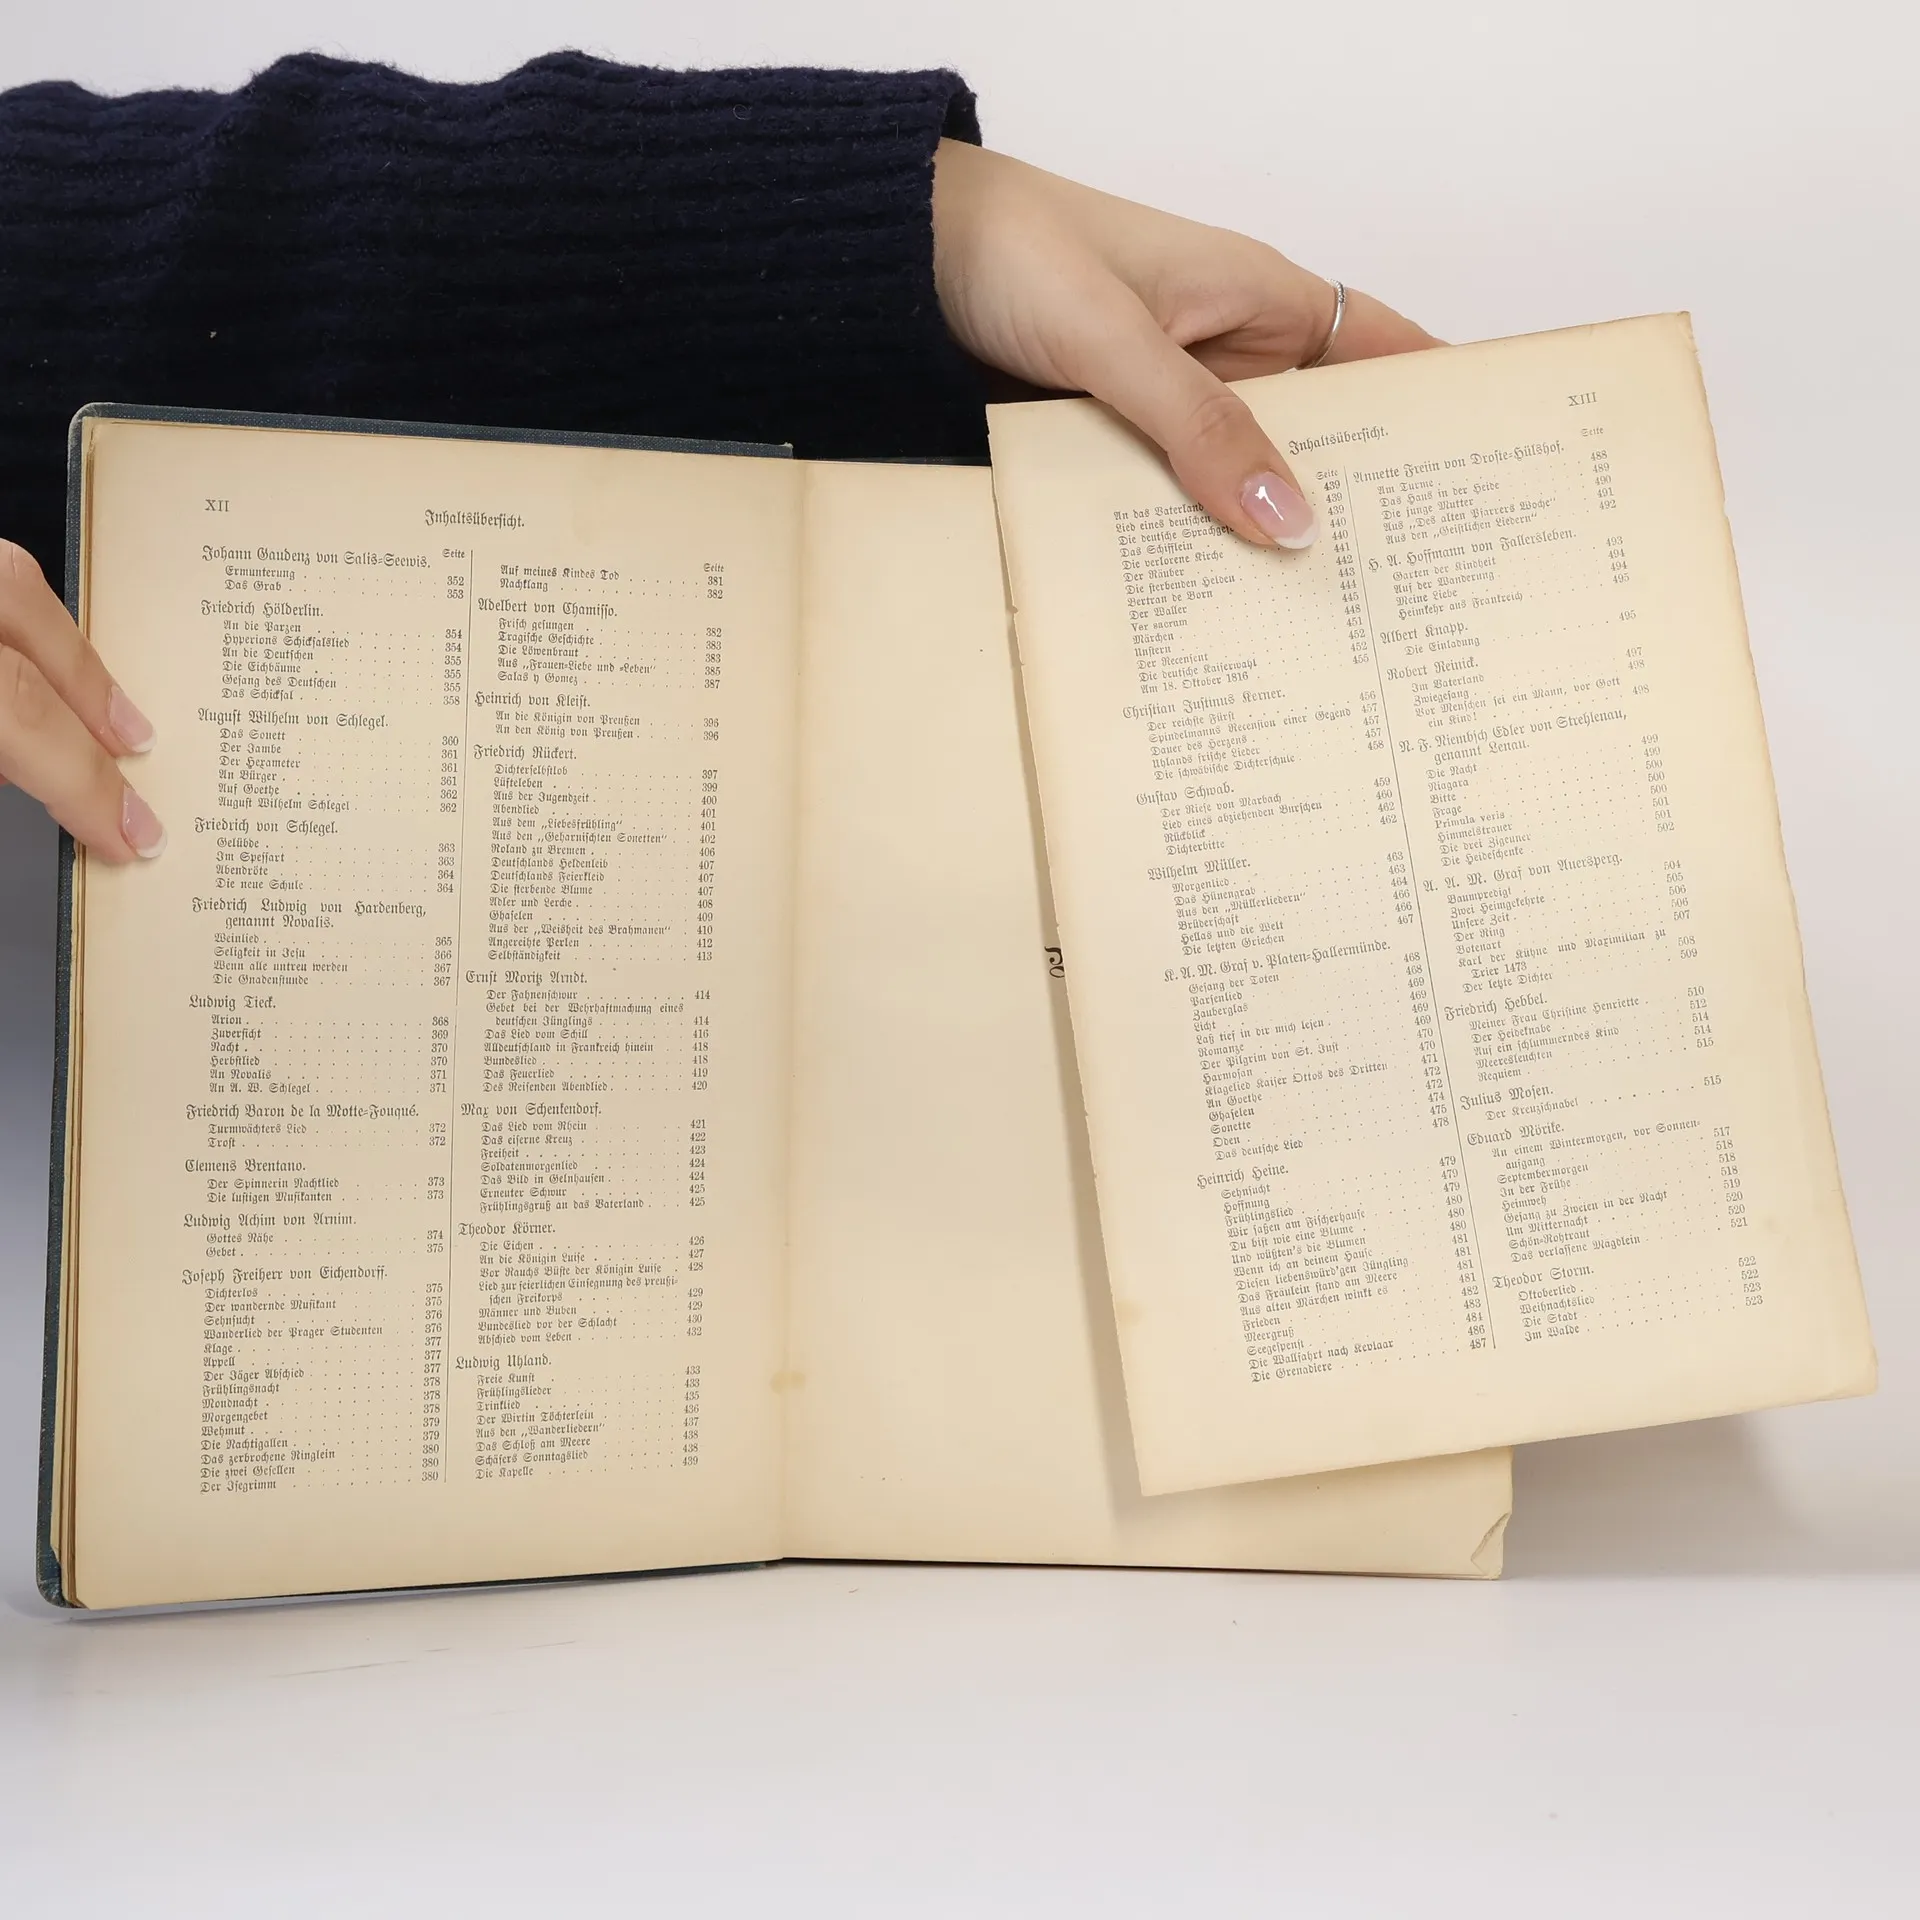 XII
Inhaltsübersicht.
Seite
Johann Gaudenz von Salis-Seewis.
Ermunterung . . . 352
Das Grab . . . 353
Friedrich Hölderlin.
An die Parzen . . . 354
Hyperions Schicksalslied . . . 354
An die Deutschen . . . 355
Die Eichbäume . . . 355
Gesang des Deutschen . . . 355
Das Schicksal . . . 358
August Wilhelm von Schlegel.
Das Sonett . . . 360
Der Jambe . . . 361
Der Hexameter . . . 361
An Bürger . . . 361
Auf Goethe . . . 362
August Wilhelm Schlegel . . . 362
Friedrich von Schlegel.
Gelübde . . . 363
Im Spessart . . . 363
Abendröte . . . 364
Die neue Schule . . . 364
Friedrich Ludwig von Hardenberg,
genannt Novalis.
Weinlied . . . 365
Seligkeit in Jesu . . . 366
Wenn alle untreu werden . . . 367
Die Gnadenstunde . . . 367
Ludwig Tieck.
Arion . . . 368
Zuversicht . . . 369
Nacht . . . 370
Herbstlied . . . 370
An Novalis . . . 371
An A. W. Schlegel . . . 371
Friedrich Baron de la Motte-Fouqué.
Turmwächters Lied . . . 372
Trost . . . 372
Clemens Brentano.
Der Spinnerin Nachtlied . . . 373
Die lustigen Musikanten . . . 373
Ludwig Achim von Arnim.
Gottes Nähe . . . 374
Gebet . . . 375
Joseph Freiherr von Eichendorff.
Dichterlos . . . 375
Der wandernde Musikant . . . 375
Sehnsucht . . . 376
Wanderlied der Prager Studenten . . . 376
Klage . . . 377
Appell . . . 377
Der Jäger Abschied . . . 377
Frühlingsnacht . . . 378
Mondnacht . . . 378
Morgengebet . . . 378
Wehmut . . . 379
Die Nachtigallen . . . 379
Das zerbrochene Ringlein . . . 380
Die zwei Gesellen . . . 380
Der Isegrimm . . . 380
Seite
Auf meines Kindes Tod . . . 381
Nachklang . . . 382
Adelbert von Chamisso.
Frisch gesungen . . . 382
Tragische Geschichte . . . 383
Die Löwenbraut . . . 383
Aus „Frauen-Liebe und -Leben“ . . . 385
Salas y Gomez . . . 387
Heinrich von Kleist.
An die Königin von Preußen . . . 396
An den König von Preußen . . . 396
Friedrich Rückert.
Dichterselbstlob . . . 397
Lüfteleben . . . 399
Aus der Jugendzeit . . . 400
Abendlied . . . 401
Aus dem „Liebesfrühling“ . . . 401
Aus den „Geharnischten Sonetten“ . . . 402
Roland zu Bremen . . . 406
Deutschlands Heldenleib . . . 407
Deutschlands Feierkleid . . . 407
Die sterbende Blume . . . 407
Adler und Lerche . . . 408
Ghaselen . . . 409
Aus der „Weisheit des Brahmanen“ . . . 410
Angereihte Perlen . . . 412
Selbständigkeit . . . 413
Ernst Moritz Arndt.
Der Fahnenschwur . . . 414
Gebet bei der Wehrhaftmachung eines
deutschen Jünglings . . . 414
Das Lied vom Schill . . . 416
Alldeutschland in Frankreich hinein . . . 418
Bundeslied . . . 418
Das Feuerlied . . . 419
Des Reisenden Abendlied . . . 420
Max von Schenkendorf.
Das Lied vom Rhein . . . 421
Das eiserne Kreuz . . . 422
Freiheit . . . 423
Soldatenmorgenlied . . . 424
Das Bild in Gelnhausen . . . 424
Erneuter Schwur . . . 425
Frühlingsgruß an das Vaterland . . . 425
Theodor Körner.
Die Eichen . . . 426
An die Königin Luise . . . 427
Vor Rauchs Büste der Königin Luise . 428
Lied zur feierlichen Einsegnung des preußi-
schen Freikorps . . . 429
Männer und Buben . . . 429
Bundeslied vor der Schlacht . . . 430
Abschied vom Leben . . . 432
Ludwig Uhland.
Freie Kunst . . . 433
Frühlingslieder . . . 433
Trinklied . . . 435
Der Wirtin Töchterlein . . . 436
Aus den „Wanderliedern“ . . . 437
Das Schloß am Meere . . . 438
Schäfers Sonntagslied . . . 438
Die Kapelle . . . 439
XIII
Inhaltsübersicht.
Seite
An das Vaterland 439
Lied eines deutschen 439
Die deutsche 439
Das Schifflein . . . 440
Die verlorene Kirche . . . 440
Der Räuber . . . 441
Die sterbenden Helden . . . 442
Bertran de Born . . . 443
Der Waller . . . 444
Ver sacrum . . . 445
Märchen . . . 448
Unstern . . . 451
Der Rezensent . . . 452
Die deutsche Kaiserwahl . . . 452
Am 18. Oktober 1816 . . . 455
Christian Justinus Kerner.
Der reichste Fürst . . . 456
Spindelmanns Recension einer Gegend 457
Dauer des Herzens . . . 457
Uhlands frische Lieder . . . 457
Die schwäbische Dichterschule . . . 458
Gustav Schwab.
Der Riese von Marbach . . . 459
Lied eines abziehenden Burschen . . . 460
Rückblick . . . 462
Dichterbitte . . . 462
Wilhelm Müller.
Morgenlied . . . 463
Das Hünengrab . . . 463
Aus den „Müllerliedern“ . . . 464
Brüderschaft . . . 466
Hellas und die Welt . . . 466
Die letzten Griechen . . . 467
K. A. M. Graf v. Platen-Hallermünde.
Gesang der Toten . . . 468
Parsenlied . . . 468
Zauberglas . . . 469
Licht . . . 469
Laß tief in dir mich lesen . . . 469
Romanze . . . 469
Der Pilgrim von St. Just . . . 470
Harmosan . . . 470
Klagelied Kaiser Ottos des Dritten . . . 471
An Goethe . . . 472
Ghaselen . . . 472
Sonette . . . 474
Oden . . . 475
Das deutsche Lied . . . 478
Heinrich Heine.
Sehnsucht . . . 479
Hoffnung . . . 479
Frühlingslied . . . 479
Wir saßen am Fischerhause . . . 480
Du bist wie eine Blume . . . 480
Und wüßten's die Blumen . . . 480
Wenn ich an deinem Hause . . . 481
Diesen liebenswürd'gen Jüngling . . . 481
Das Fräulein stand am Meere . . . 481
Aus alten Märchen winkt es . . . 481
Frieden . . . 482
Meergruß . . . 483
Seegespenst . . . 484
Die Wallfahrt nach Kevlaar . . . 486
Die Grenadiere . . . 487
Seite
Annette Freiin von Droste-Hülshof.
Am Turme . . . 488
Das Haus in der Heide . . . 489
Die junge Mutter . . . 490
Aus „Des alten Pfarrers Woche“ . . . 491
Aus den „Geistlichen Liedern“ . . . 492
H. A. Hoffmann von Fallersleben.
Garten der Kindheit . . . 493
Auf der Wanderung . . . 494
Meine Liebe . . . 494
Heimkehr aus Frankreich . . . 495
Albert Knapp.
Die Einladung . . . 495
Robert Reinick.
Im Vaterland . . . 497
Zwiegesang . . . 498
Vor Menschen sei ein Mann, vor Gott
ein Kind! . . . 498
N. F. Niembsch Edler von Strehlenau,
genannt Lenau.
Die Nacht . . . 499
Niagara . . . 499
Bitte . . . 500
Frage . . . 500
Primula veris . . . 500
Himmelstrauer . . . 501
Die drei Zigeuner . . . 501
Die Heideschenke . . . 502
A. A. M. Graf von Auersperg.
Baumpredigt . . . 504
Zwei Heimgekehrte . . . 505
Unsere Zeit . . . 506
Der Ring . . . 506
Botenart . . . 507
Karl der Kühne und Maximilian zu
Trier 1473 . . . 508
Der letzte Dichter . . . 509
Friedrich Hebbel.
Meiner Frau Christine Henriette . . . 510
Der Heideknabe . . . 512
Auf ein schlummerndes Kind . . . 514
Meeresleuchten . . . 514
Requiem . . . 515
Julius Mosen.
Der Kreuzschnabel . . . 515
Eduard Mörike.
An einem Wintermorgen, vor Sonnen-
aufgang . . . 517
Septembermorgen . . . 518
In der Frühe . . . 518
Heimweh . . . 518
Gesang zu Zweien in der Nacht . . . 519
Um Mitternacht . . . 520
Schön-Rohtraut . . . 520
Das verlassene Mägdlein . . . 521
Theodor Storm.
Oktoberlied . . . 522
Weihnachtslied . . . 522
Die Stadt . . . 523
Im Walde . . . 523